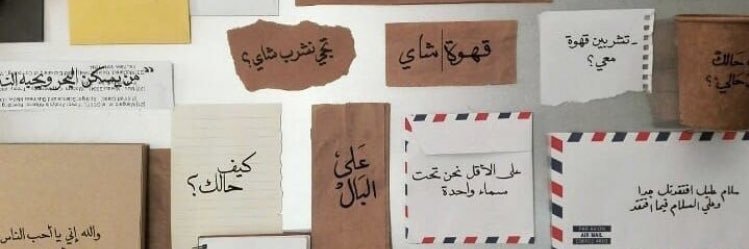 تجي نشرب شاي؟
قهوة | شاي
ـ تشربين قهوة
معي؟
حالك
حالي؟
كيف
حالك؟
على
البال
على الأقل نحن تحت
سماء واحدة
سلام عليك افتقدتك جدا
وعليّ السلام فيما افتقد
PAR AVION
AIR MAIL
والله إني يا أحب الناس